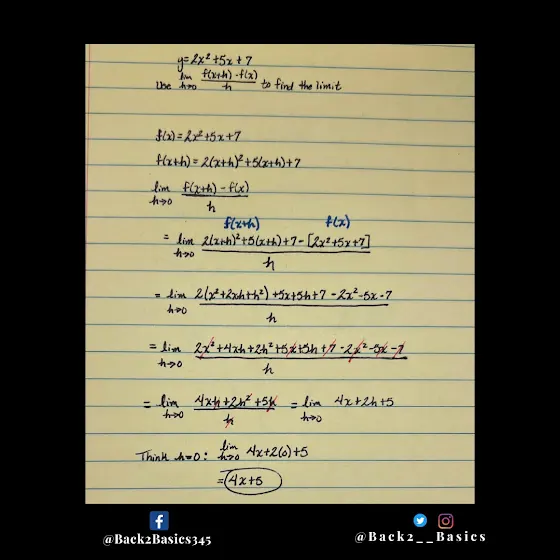 y=2x²+5x+7
Use lim h→0 f(x+h)-f(x) / h to find the limit
f(x)=2x²+5x+7
f(x+h)=2(x+h)²+5(x+h)+7
lim h→0 f(x+h)-f(x) / h
f(x+h) f(x)
= lim h→0 2(x+h)²+5(x+h)+7-[2x²+5x+7] / h
= lim h→0 2(x²+2xh+h²)+5x+5h+7-2x²-5x-7 / h
= lim h→0 2x²+4xh+2h²+5x+5h+7-2x²-5x-7 / h
= lim h→0 4xh+2h²+5h / h = lim h→0 4x+2h+5
Think h=0: lim h→0 4x+2(0)+5
= 4x+5
@Back2Basics345
@Back2__Basics